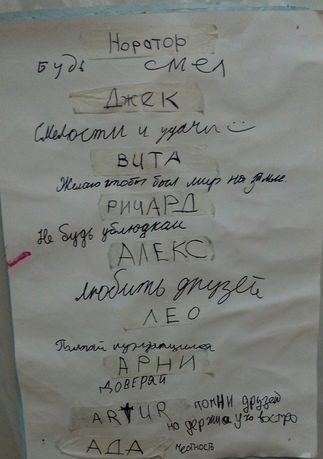 Норатор
Будь смел
Джек
Смелости и удачи
ВИТА
Желаю чтобы был мир на земле.
РИЧАРД
Не будь ублюдкам
АЛЕКС
любить друзей
ЛЕО
Помогай нуждающимся
АРНИ
ДОВЕРЯЙ
ARTUR помни друзей
но держи ухо востро
АДА честность